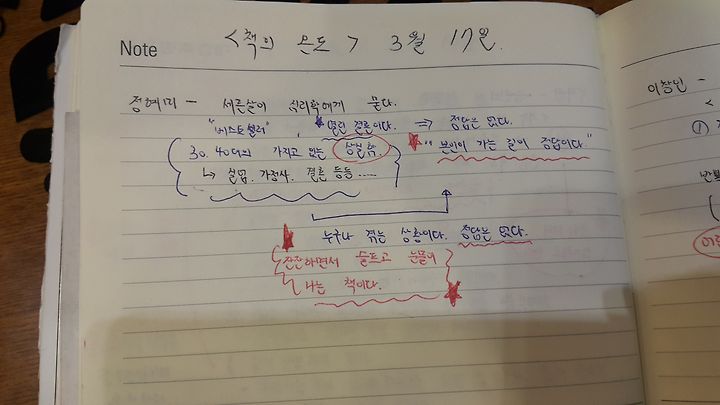 Note <책의 온도> 3월 17일.
정혜미 - 서른살이 심리학에게 묻다.
"베스트셀러", 열린 결론이다. ⇒ 정답은 없다.
30. 40대의 가지고 있는 상실함. "본인이 가는 길이 정답이다"
↳ 실업, 가정사, 결혼 등등.....
누구나 겪는 상황이다. 정답은 없다.
잔잔하면서 슬프고 눈물이
나는 책이다.
이창민 -
<
①